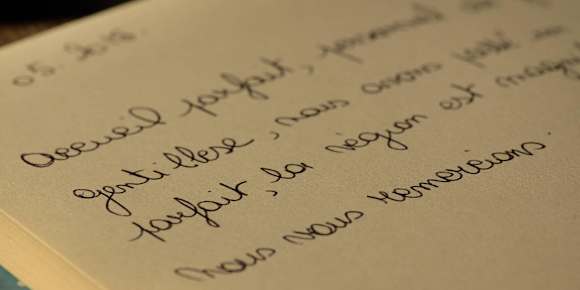 05. 2018.
Accueil parfait, personnel
gentillesse, nous avons passé un
parfait, la région est
nous vous remercions.